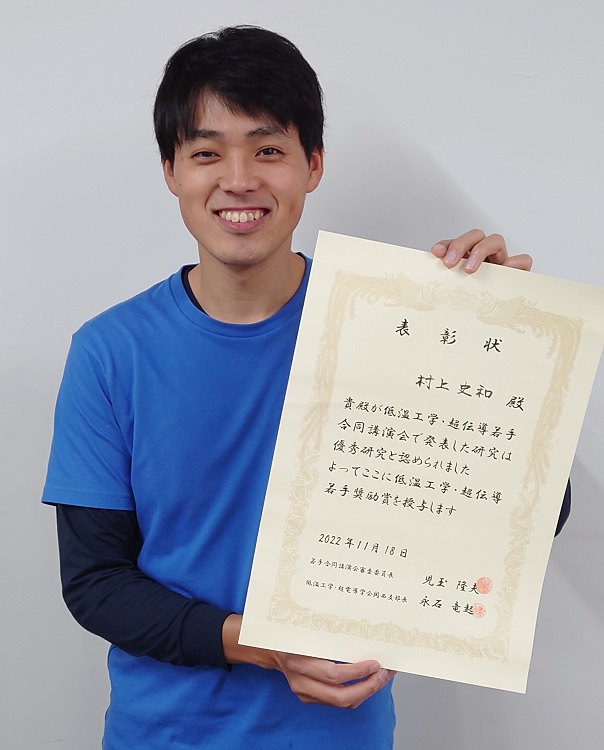 表彰状
村上史和 殿
貴殿が低温工学・超伝導若手
合同講演会で発表した研究は
優秀研究と認められました
よってここに低温工学・超伝導
若手奨励賞を授与します
2022年11月18日
若手合同講演会審査委員長
児玉 隆夫
低温工学・超電導学会関西支部長
永石 竜起